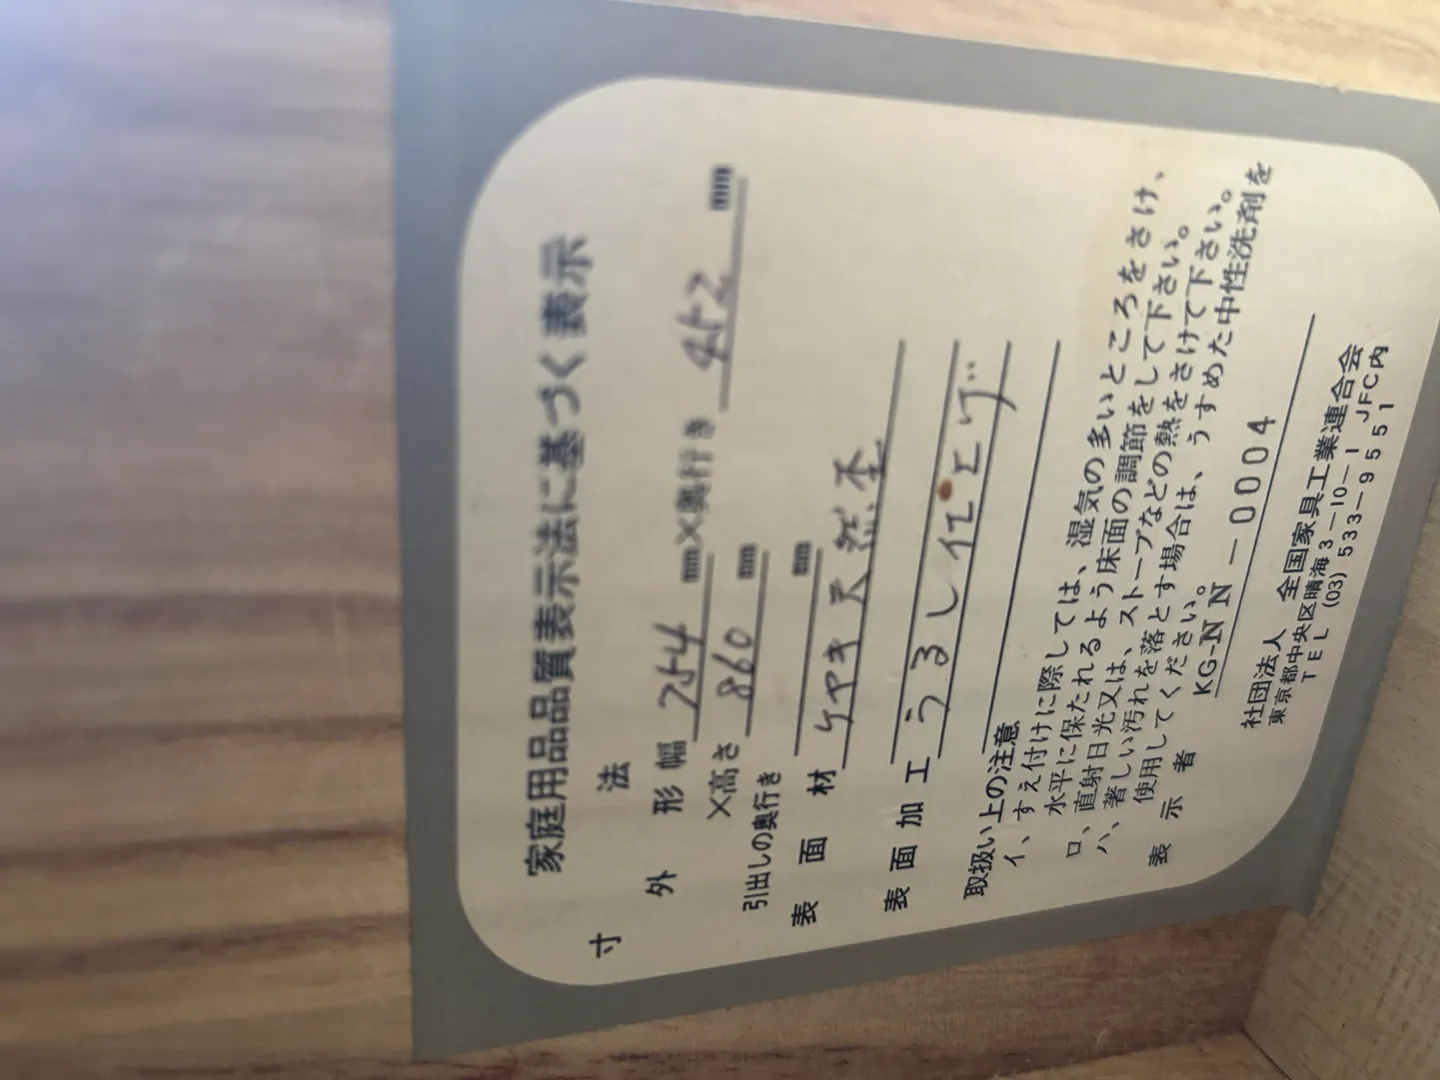 家庭用品品質表示法に基づく表示
寸 法
外 形 幅 254 mm×奥行き 452 mm
×高さ 860 mm
引出しの奥行き mm
表 面 材 ケヤキ天然杢
表 面 加 工 うるし仕上げ
取扱い上の注意
イ、すえ付けに際しては、湿気の多いところをさけ、
水平に保たれるよう床面の調節をして下さい。
ロ、直射日光又は、ストーブなどの熱をさけて下さい。
ハ、著しい汚れを落とす場合は、うすめた中性洗剤を
使用してください。
表 示 者 KG-NN-0004
社団法人 全国家具工業連合会
東京都中央区晴海3-10-1 JFC内
TEL (03) 533-9551